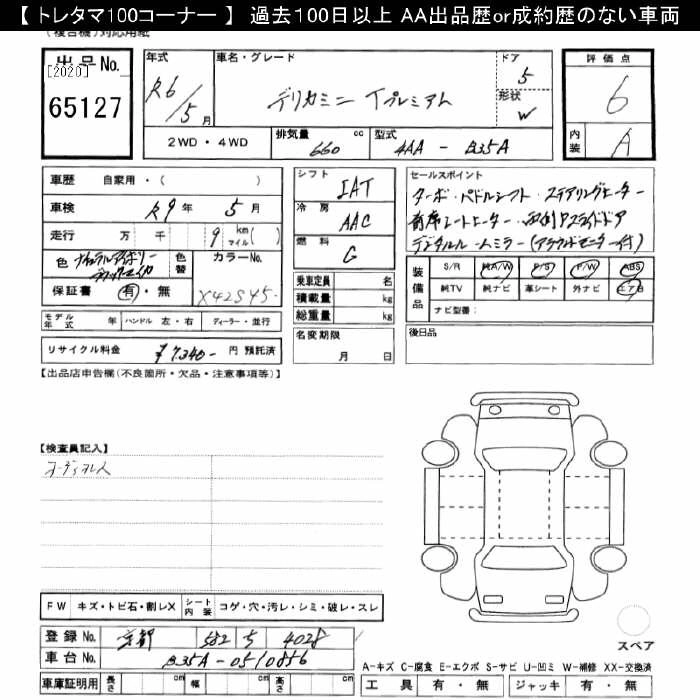 【 トレタマ100コーナー 】 過去100日以上 AA出品歴or成約歴のない車両
(複合機)対応用紙
出品No.
[2020]
65127
年式
R6/5月
車名・グレード
デリカミニ Tプレミアム
ドア
5
形状
W
評価点
6
内装
A
2WD・4WD
排気量
660 cc
型式
4AA - B35A
車歴 自家用・( )
車検 R9年 5月
走行 万 千 9 km マイル( )
色 ナチュラルアイボリー
色替
カラーNo.
X42S45
保証書 有・無
モデル年式 年 ハンドル 左・右 ディーラー・並行
リサイクル料金 ¥7,340- 円 預託済
シフト
IAT
冷房
AAC
燃料
G
乗車定員 名
積載量 kg
総重量 kg
名変期限
月 日
セールスポイント
ターボ・パドルシフト・ステアリングヒーター
前席シートヒーター・両側Pスライドドア
デジタルルームミラー(アラウンドモニター付)
装備品
S/R 純A/W P/S P/W ABS
純TV 純ナビ 革シート 外ナビ エアB
ナビ型番:
後日品
【出品店申告欄(不良箇所・欠品・注意事項等)】
【検査員記入】
オーディオレス
FW キズ・トビ石・割レX シート内装 コゲ・穴・汚レ・シミ・破レ・スレ
登録No. 京都 582 ち 4028
車台No. B35A-0510856
車庫証明用 長さ cm 幅 cm 高さ cm
スペア
A-キズ C-腐食 E-エクボ S-サビ U-凹ミ W-補修 XX-交換済
工具 有・無 ジャッキ 有・無